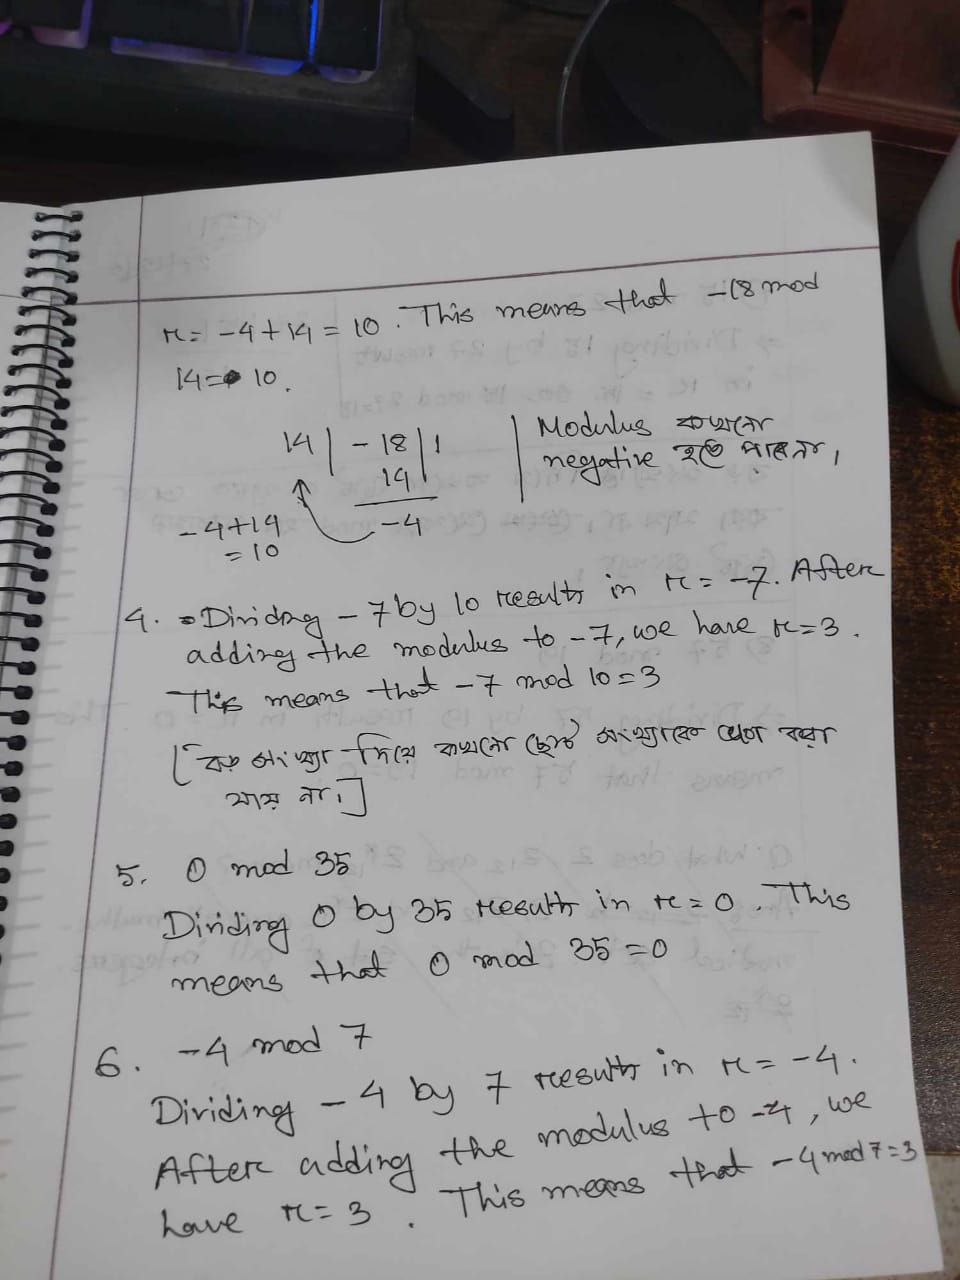 r = -4 + 14 = 10. This means that -18 mod
14 = 10.
14 | -18 | 1
14
-4
-4+14
= 10
Modulus কখনো
negative হতে পারে না,
4. Dividing -7 by 10 results in r = -7. After
adding the modulus to -7, we have r = 3.
This means that -7 mod 10 = 3
[বড় সংখ্যা দিয়ে কখনো ছোট সংখ্যাকে ভাগ করা
যায় না।]
5. 0 mod 35
Dividing 0 by 35 results in r = 0. This
means that 0 mod 35 = 0
6. -4 mod 7
Dividing -4 by 7 results in r = -4.
After adding the modulus to -4, we
have r = 3. This means that -4 mod 7 = 3